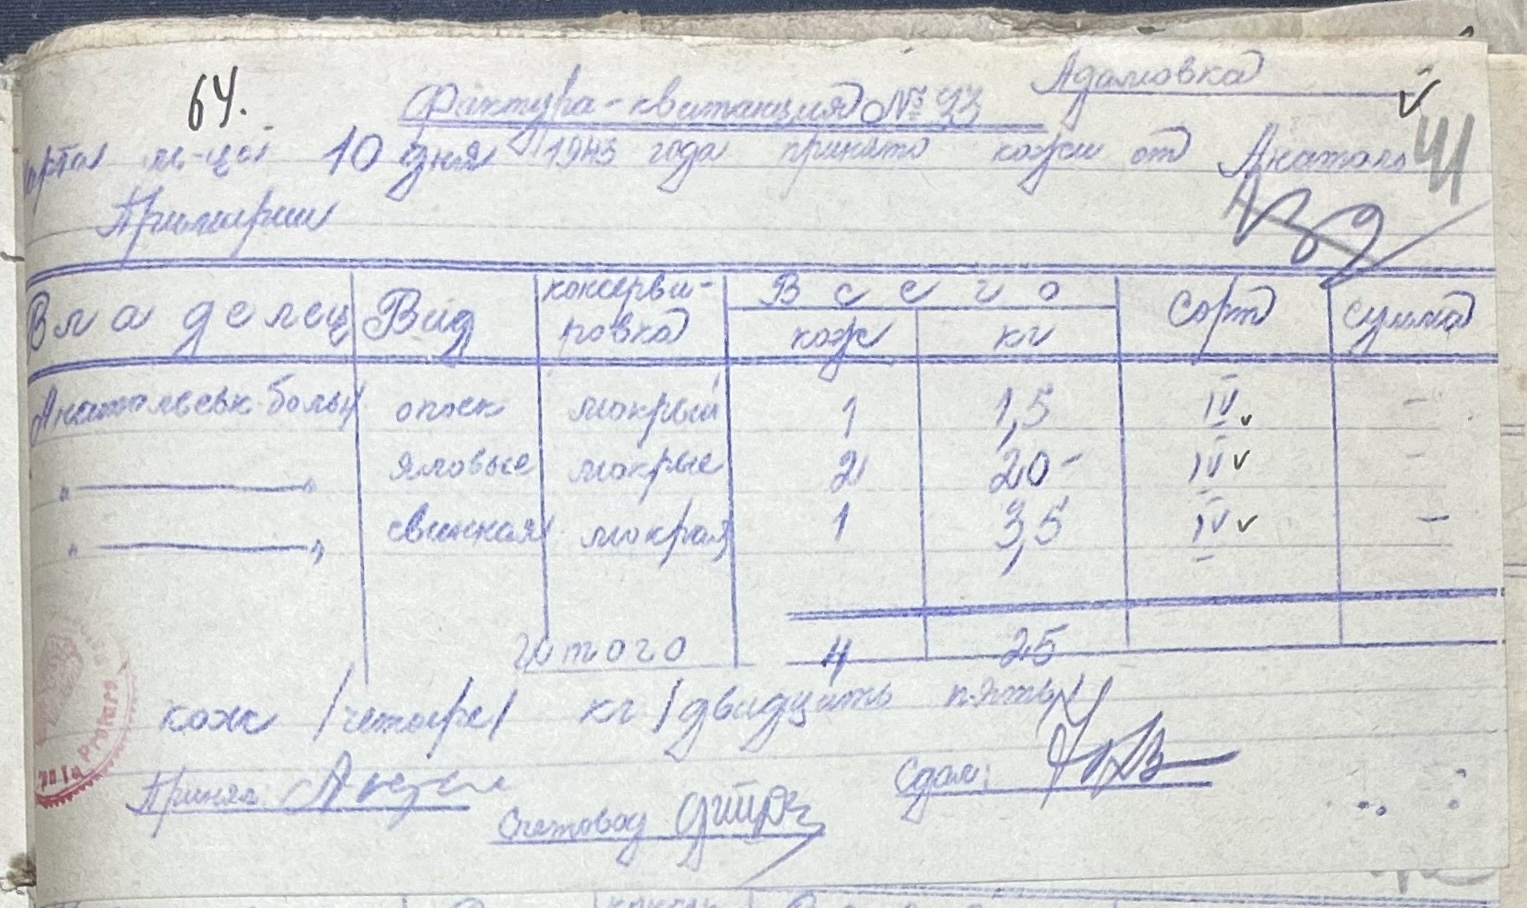 64.
Адамовка
Фактура-квитанция № 93
41
м-ца 10 дня 1943 года принято кожи от Анатоль
Примирии
Владелец Вид консерви-ровка Всего кож кг сорт сумма
Анатольевк. больн опоек мокрый 1 1,5 IV -
" — " яловые мокрые 2 20- IV -
" — " свинная мокрая 1 3,5 IV -
Итого 4 25
кож /четыре/ кг /двадцать пять/
Принял:
Сдал:
Счетовод